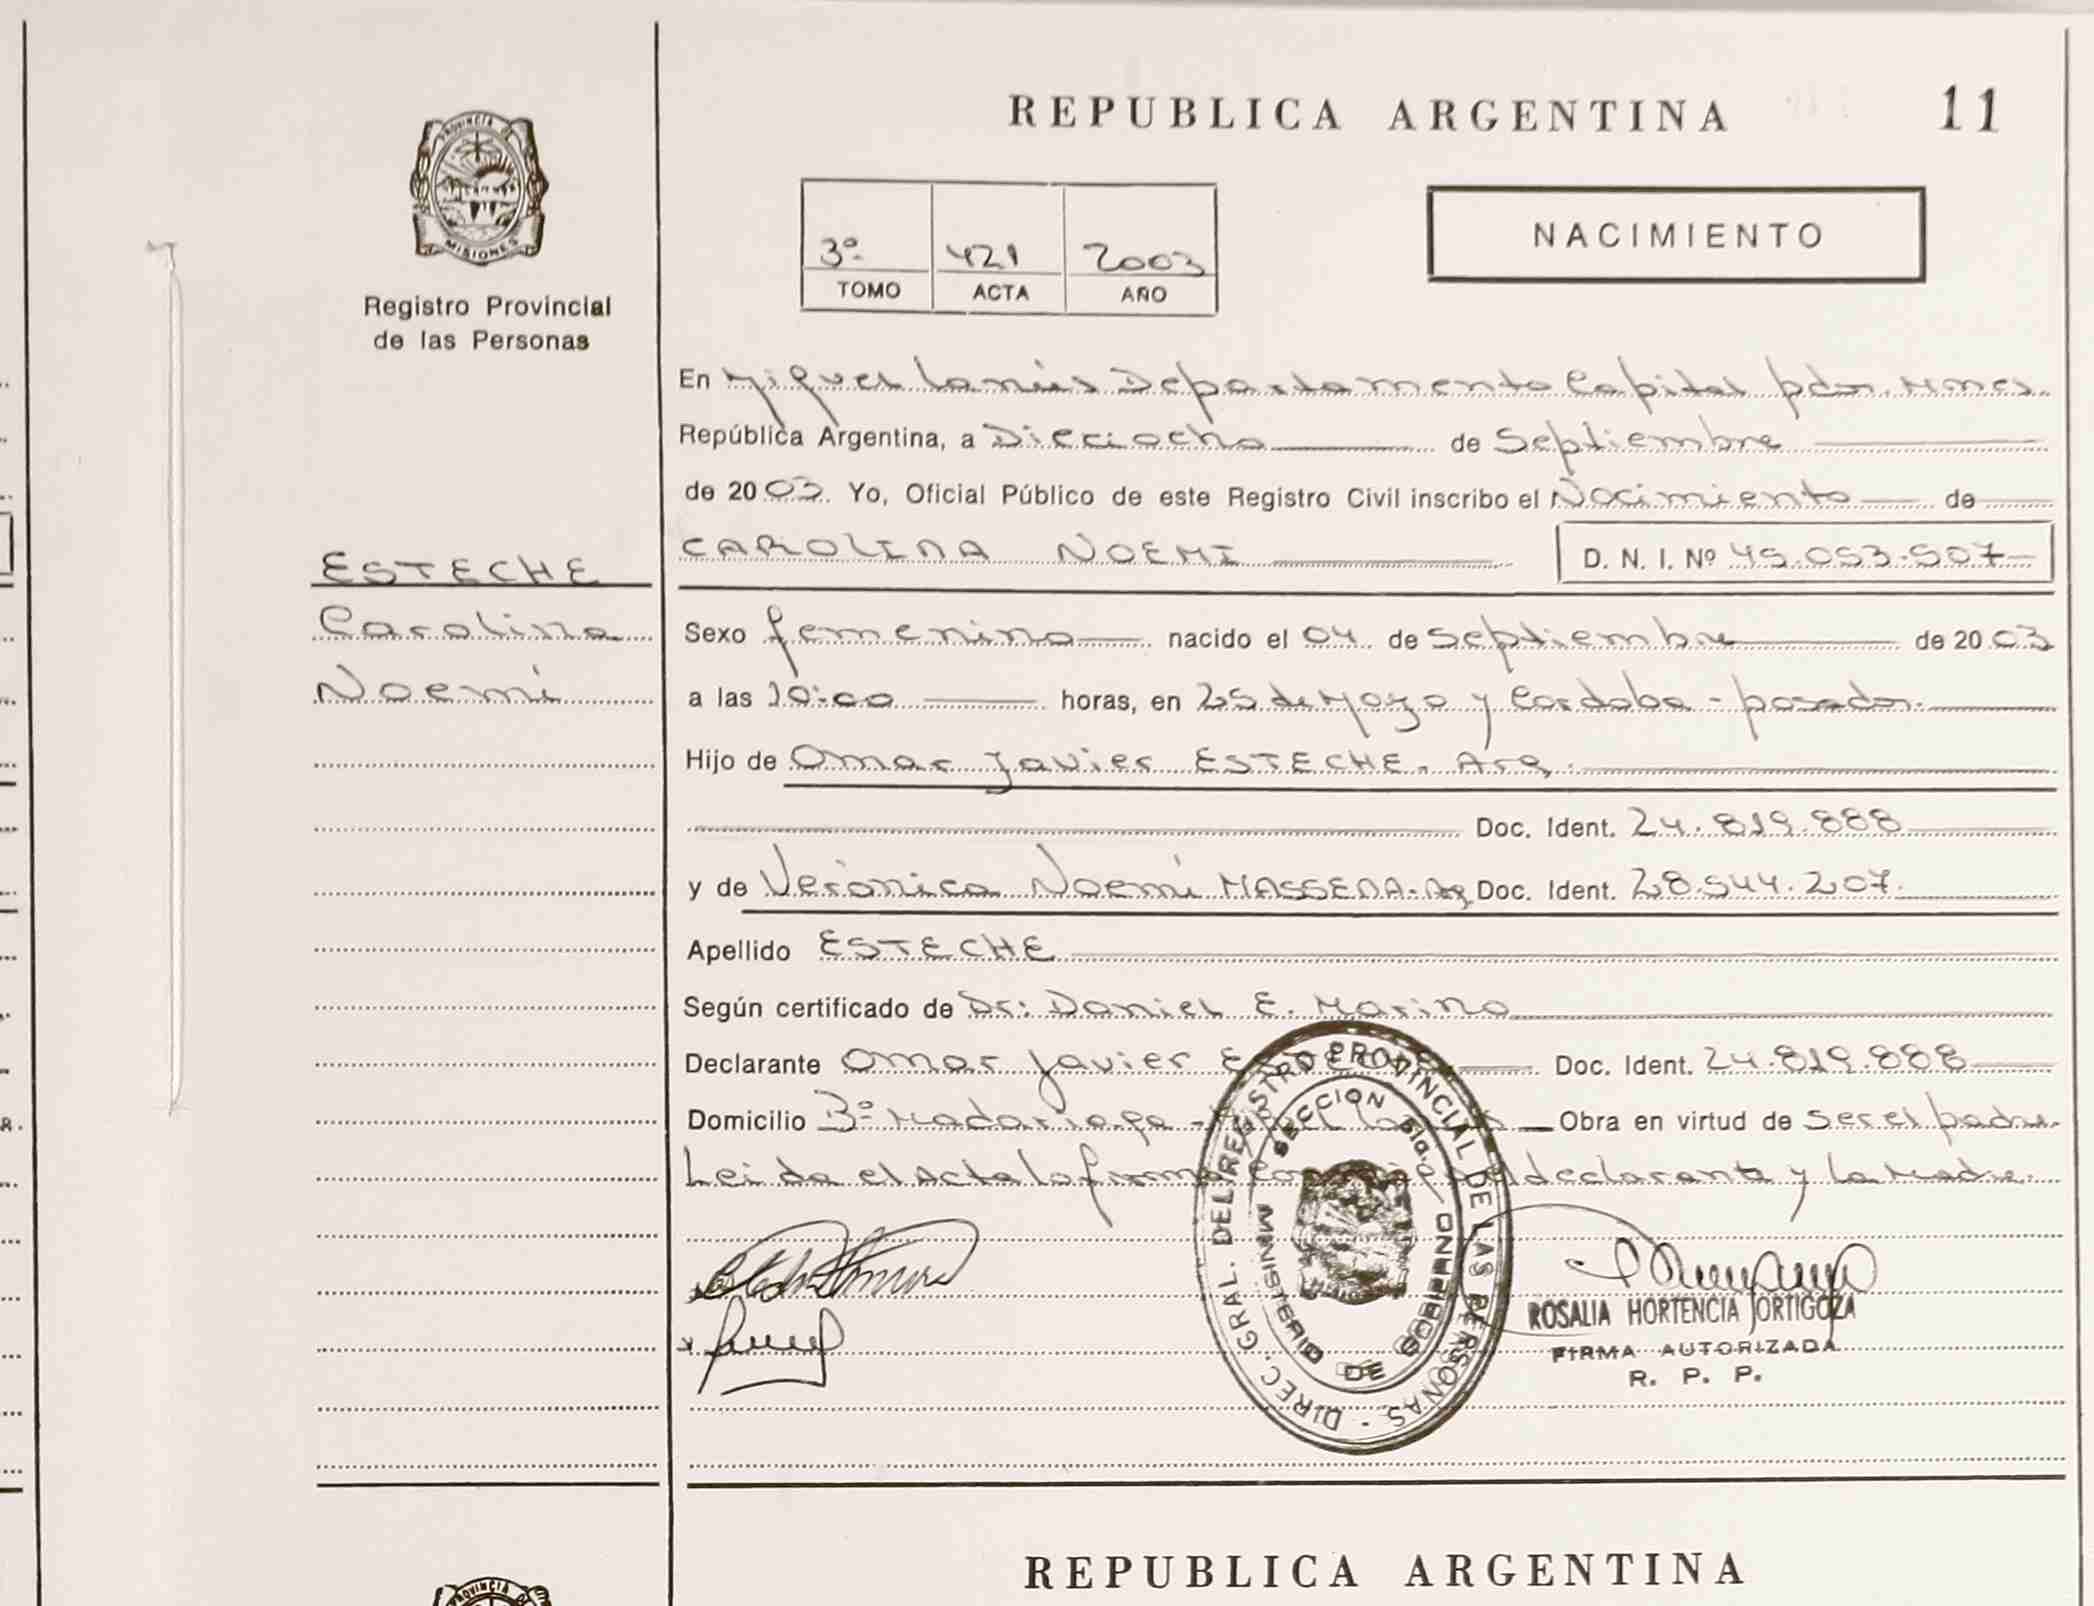 REPUBLICA ARGENTINA 11
PROVINCIA DE
MISIONES
Registro Provincial
de las Personas
3º 421 2003
TOMO ACTA AÑO
NACIMIENTO
En Miguel Lanús Departamento Capital pcia. Mnes.
República Argentina, a Dieciocho de Septiembre
de 2003 Yo, Oficial Público de este Registro Civil inscribo el Nacimiento de
CAROLINA NOEMI D. N. I. Nº 45.053.507
ESTECHE
Carolina
Noemí
Sexo femenino nacido el 04 de Septiembre de 2003
a las 10:00 horas, en 25 de Mayo y Cordoba - posadas.
Hijo de Omar Javier ESTECHE. Arg.
Doc. Ident. 24.819.888
y de Verónica Noemí MASSENA. Arg Doc. Ident. 28.544.207.
Apellido ESTECHE
Según certificado de Dr: Daniel E. Marino
Declarante Omar Javier Doc. Ident. 24.819.888
Domicilio Bº Madariaga - Obra en virtud de ser el padre
Leida el Acta la firma el declarante y la Madre.
DIREC. GRAL. DEL REGISTRO PROVINCIAL DE LAS PERSONAS
SECCION
MINISTERIO DE GOBIERNO
ROSALIA HORTENCIA ORTIGOZA
FIRMA AUTORIZADA
R. P. P.
REPUBLICA ARGENTINA
PROVINCIA